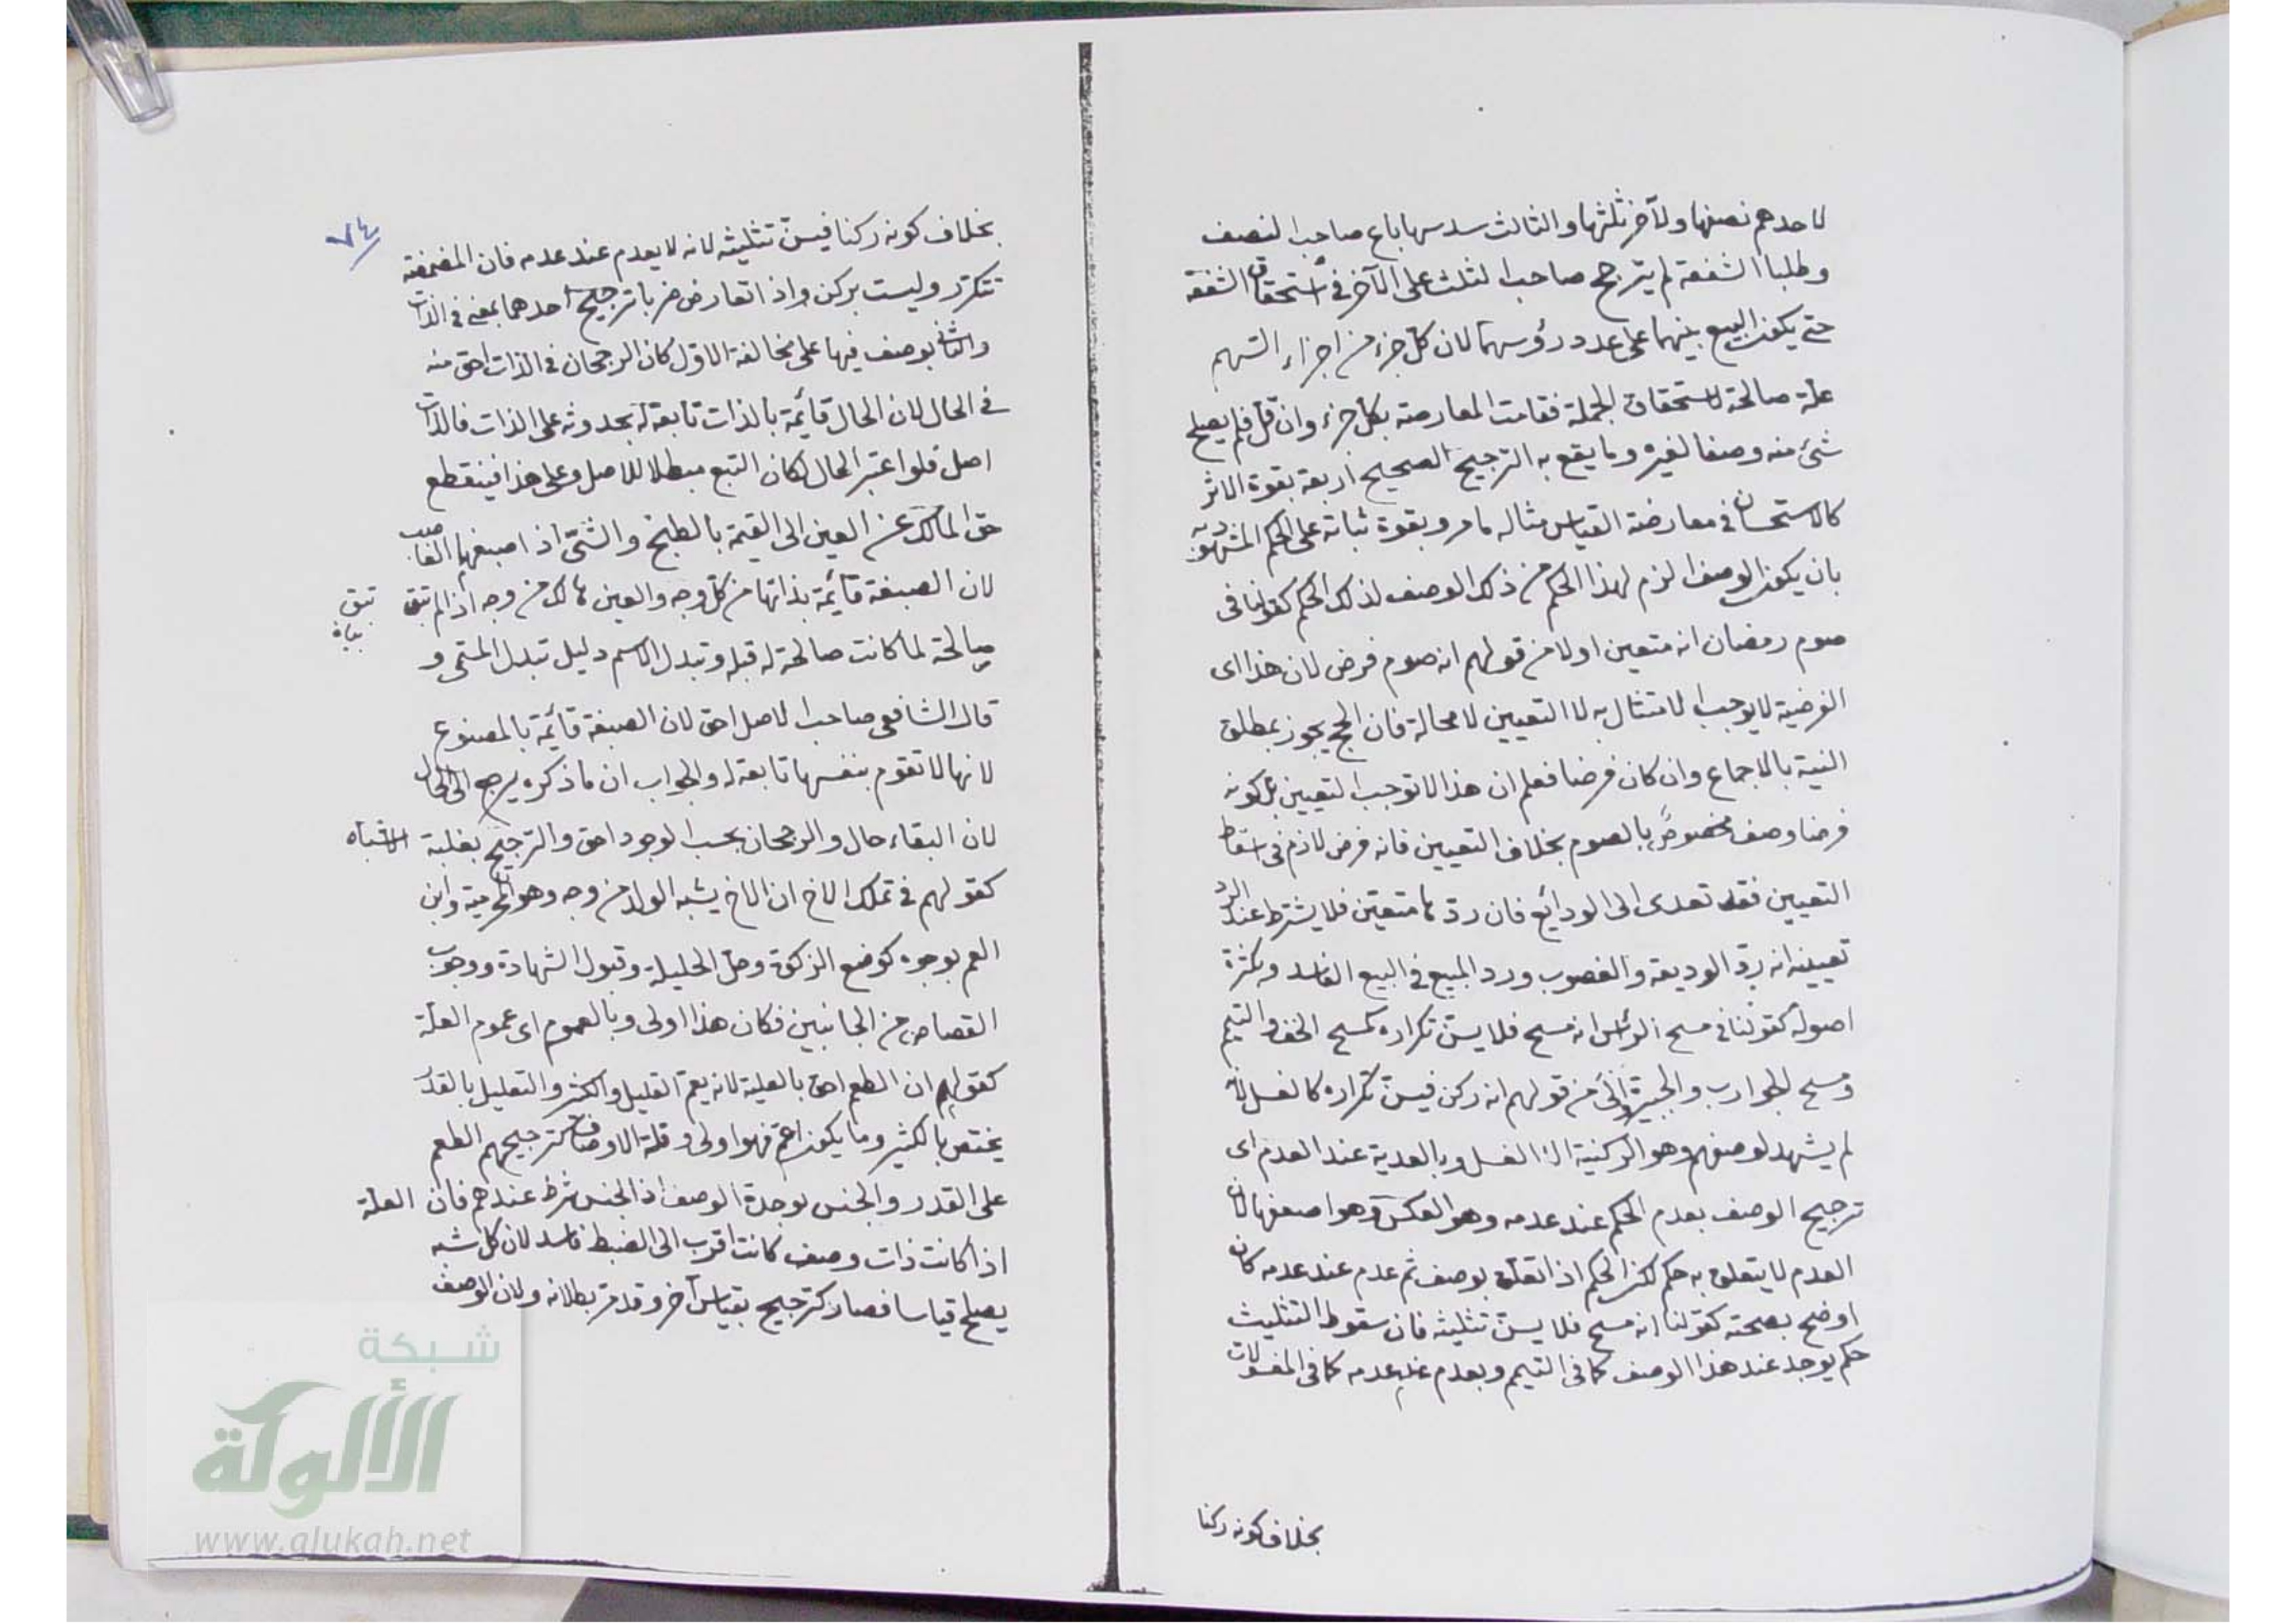 لاحدهم نصفها ولآخر ثلثها والثالث سدسها باع صاحب النصف
وطلبا الشفعة لم يترجح صاحب الثلث على الآخر في استحقاق الشفعة
حتى يكون المبيع بينهما على عدد رؤسهما لان كل جزء من اجزاء السهم
علة صالحة لاستحقاق الجملة فقامت المعارضة بكل جزء وان قل فلم يصلح
شئ منه وصفا لغيره وما يقع به الترجيح الصحيح اربعة بقوة الاثر
كالاستحسان في معارضة القياس مثاله ما مر وبقوة ثباته على الحكم المشهود به
بان يكون الوصف الزم لهذا الحكم من ذلك الوصف لذلك الحكم كقولنا في
صوم رمضان انه متعين اولا من قولهم انه صوم فرض لان هذا اى
الفرضية لا يوجب الامتثال به لا التعيين لا محالة فان الحج يجوز بمطلق
النية بالاجماع وان كان فرضا فعلم ان هذا لا توجب التعيين بل كونه
فرضا وصف مخصوص بالصوم بخلاف التعيين فانه فرض لازم في اسقاط
التعيين فقد تعدى الى الودائع فان ردها متعين فلا يشترط عند الرد
تعيينه انه رد الوديعة والغصوب ورد المبيع في البيع الفاسد وبكثرة
اصوله كقولنا في مسح الرأس انه مسح فلا يسن تكراره كمسح الخف والتيمم
ومسح الجوارب والجبيرة من قولهم انه ركن فيسن تكراره كالغسل لانه
لم يشهد لوصفهم وهو الركنية الا الغسل وبالعدمية عند العدم اى
ترجيح الوصف بعدم الحكم عند عدمه وهو العكس وهو اضعفها لان
العدم لا يتعلق به حكم لكن الحكم اذا تعلق بوصف ثم عدم عند عدمه كان
اوضح بصحته كقولنا انه مسح فلا يسن تثليثه فان سقوط التثليث
حكم يوجد عند هذا الوصف كما في التيمم وبعدم عند عدمه كما في المغسولات
بخلاف كونه ركنا
٧٤
بخلاف كونه ركنا فيسن تثليثه لانه لا يعدم عند عدمه فان المضمضة
تتكرر وليست بركن واذا تعارض ضربا ترجيح احدهما بمعنى في الذات
والثاني بوصف فيها على مخالفة الاول كان الرجحان في الذات احق منه
في الحال لان الحال قائمة بالذات تابعة له بحدوثه على الذات فالذات
اصل فلو اعتبر الحال لكان التبع مبطلا للاصل وعلى هذا فينقطع
حق المالك عن العين الى القيمة بالطبخ والشي اذا صبغها الغاصب
لان الصبغة قائمة بذاتها من كل وجه والعين هالك من وجه اذ لم تبق
تبق
بيان
صالحة لما كانت صالحة له قبله وتبدل الاسم دليل تبدل المسمى و
قال الشافعى صاحب الاصل احق لان الصبغة قائمة بالمصنوع
لانها لا تقوم بنفسها تابعة له والجواب ان ما ذكره يرجع الى الحال
لان البقاء حال والرجحان بحسب الوجود احق والترجيح بغلبة الاشباه
كقولهم في تملك الاخ ان الاخ يشبه الولد من وجه وهو المحرمية وابن
العم بوجوه كوضع الزكوة وحل الحليلة وقبول الشهادة ووجوب
القصاص من الجانبين فكان هذا اولى وبالعموم اى عموم العلة
كقولهم ان الطعم احق بالعلية لانه يعم القليل والكثير والتعليل بالقدر
يختص بالكثير وما يكون اعم فهو اولى وقلة الاوصاف كترجيحهم الطعم
على القدر والجنس لوحدة الوصف اذ الجنس شرط عندهم فان العلة
اذا كانت ذات وصف كانت اقرب الى الضبط فاسد لان كل شبه
يصلح قياسا فصار كترجيح بقياس آخر وقد مر بطلانه ولان الوصف
شبكة
الألوكة
www.alukah.net